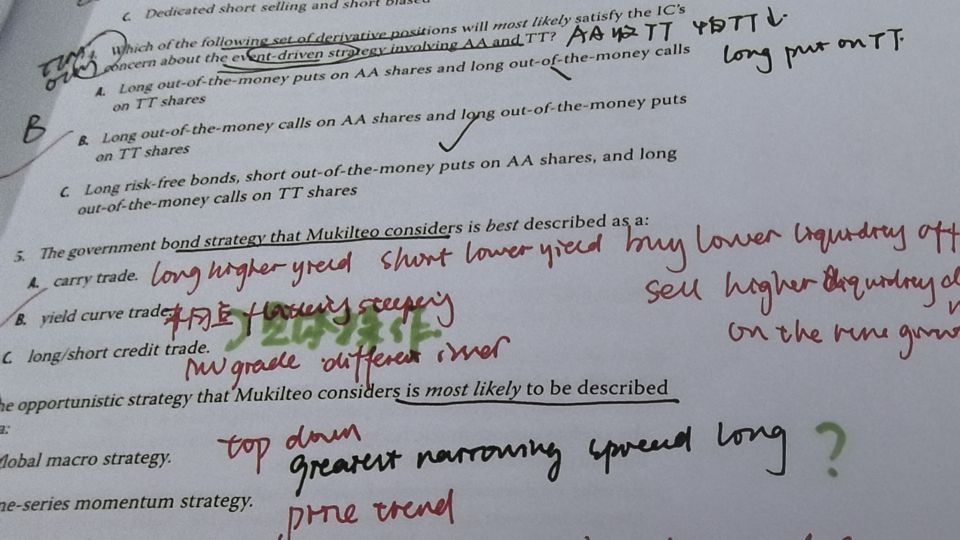 C. Dedicated short selling and short biased
Which of the following set of derivative positions will most likely satisfy the IC's
concern about the event-driven strategy involving AA and TT? AA收TT 中白TT↓
long put on TT.
A. Long out-of-the-money puts on AA shares and long out-of-the-money calls
on TT shares
B
B. Long out-of-the-money calls on AA shares and long out-of-the-money puts
on TT shares
C. Long risk-free bonds, short out-of-the-money puts on AA shares, and long
out-of-the-money calls on TT shares
5. The government bond strategy that Mukilteo considers is best described as a:
A. carry trade. long higher yield short lower yield buy lower liquidity off
sell higher liquidity
B. yield curve trade. 不同点 flattening steeping
on the
C long/short credit trade.
grade different issuer
he opportunistic strategy that Mukilteo considers is most likely to be described
a:
lobal macro strategy. top down
greatest narrowing spread long ?
ne-series momentum strategy.
price trend